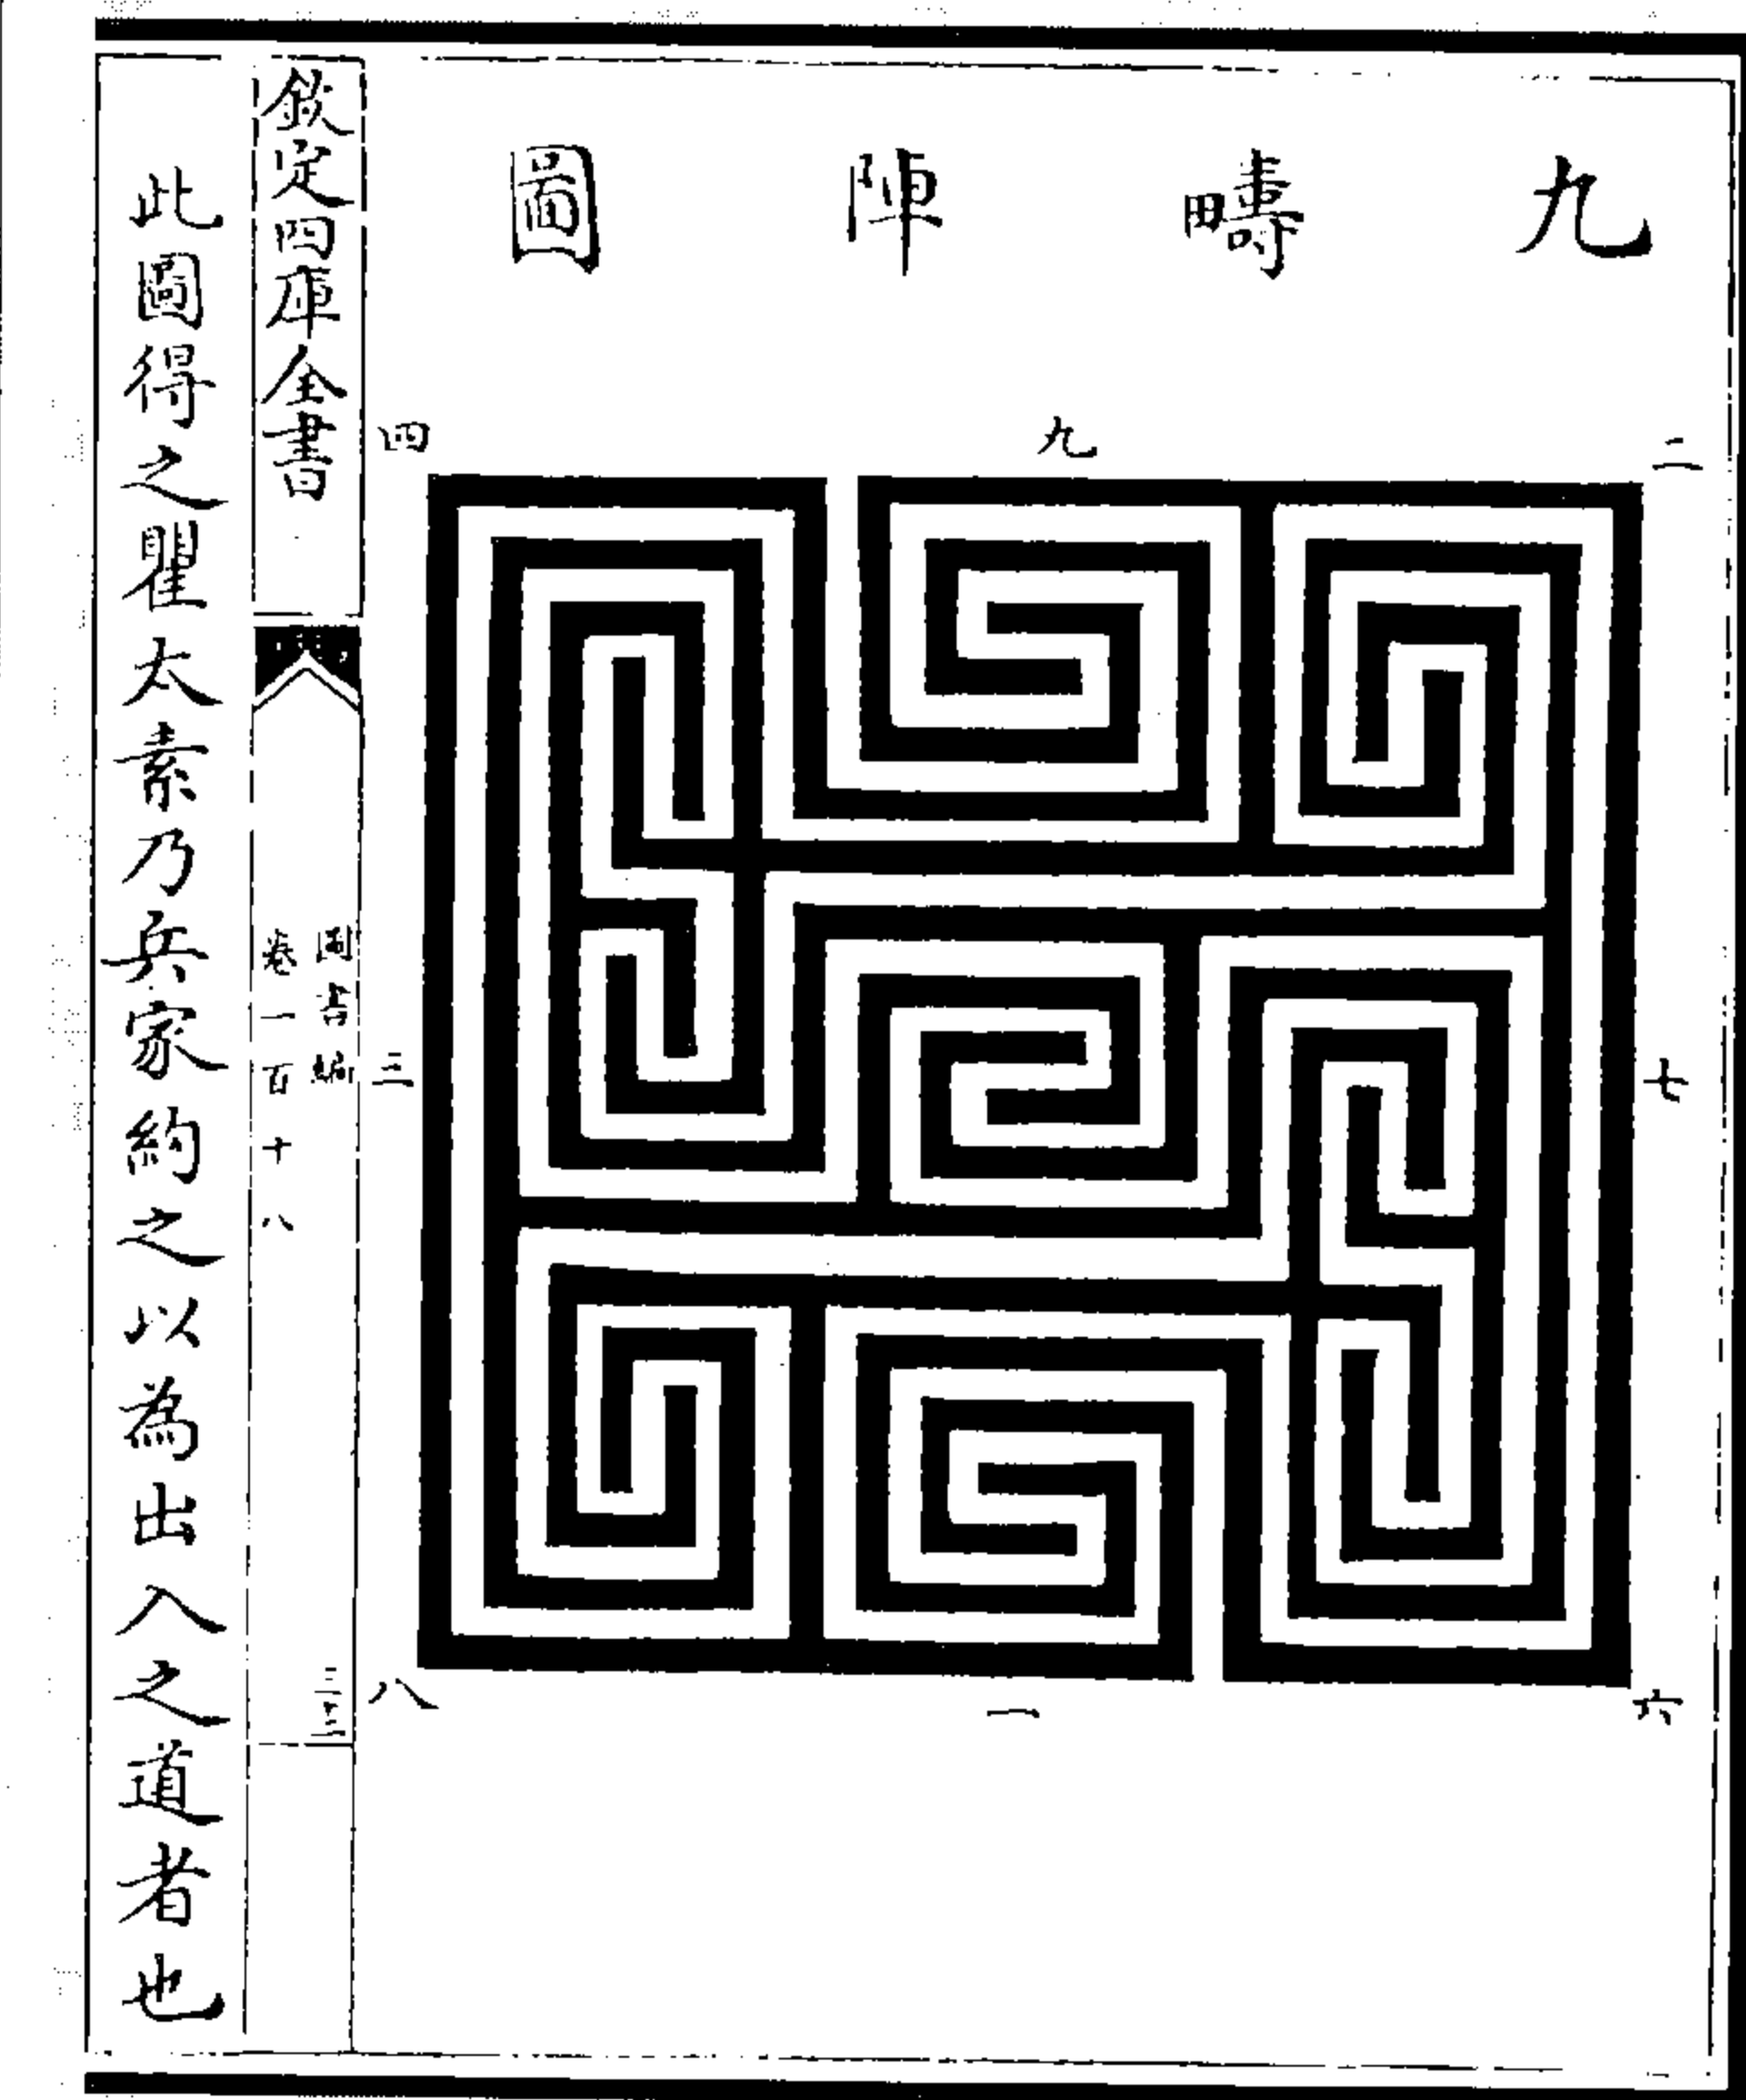 九疇陣圖
二
九
四
七
三
六
一
八
欽定四庫全書
圖書編
卷一百十八
三十三
此圖得之瞿太素乃兵家約之以為出入之道者也